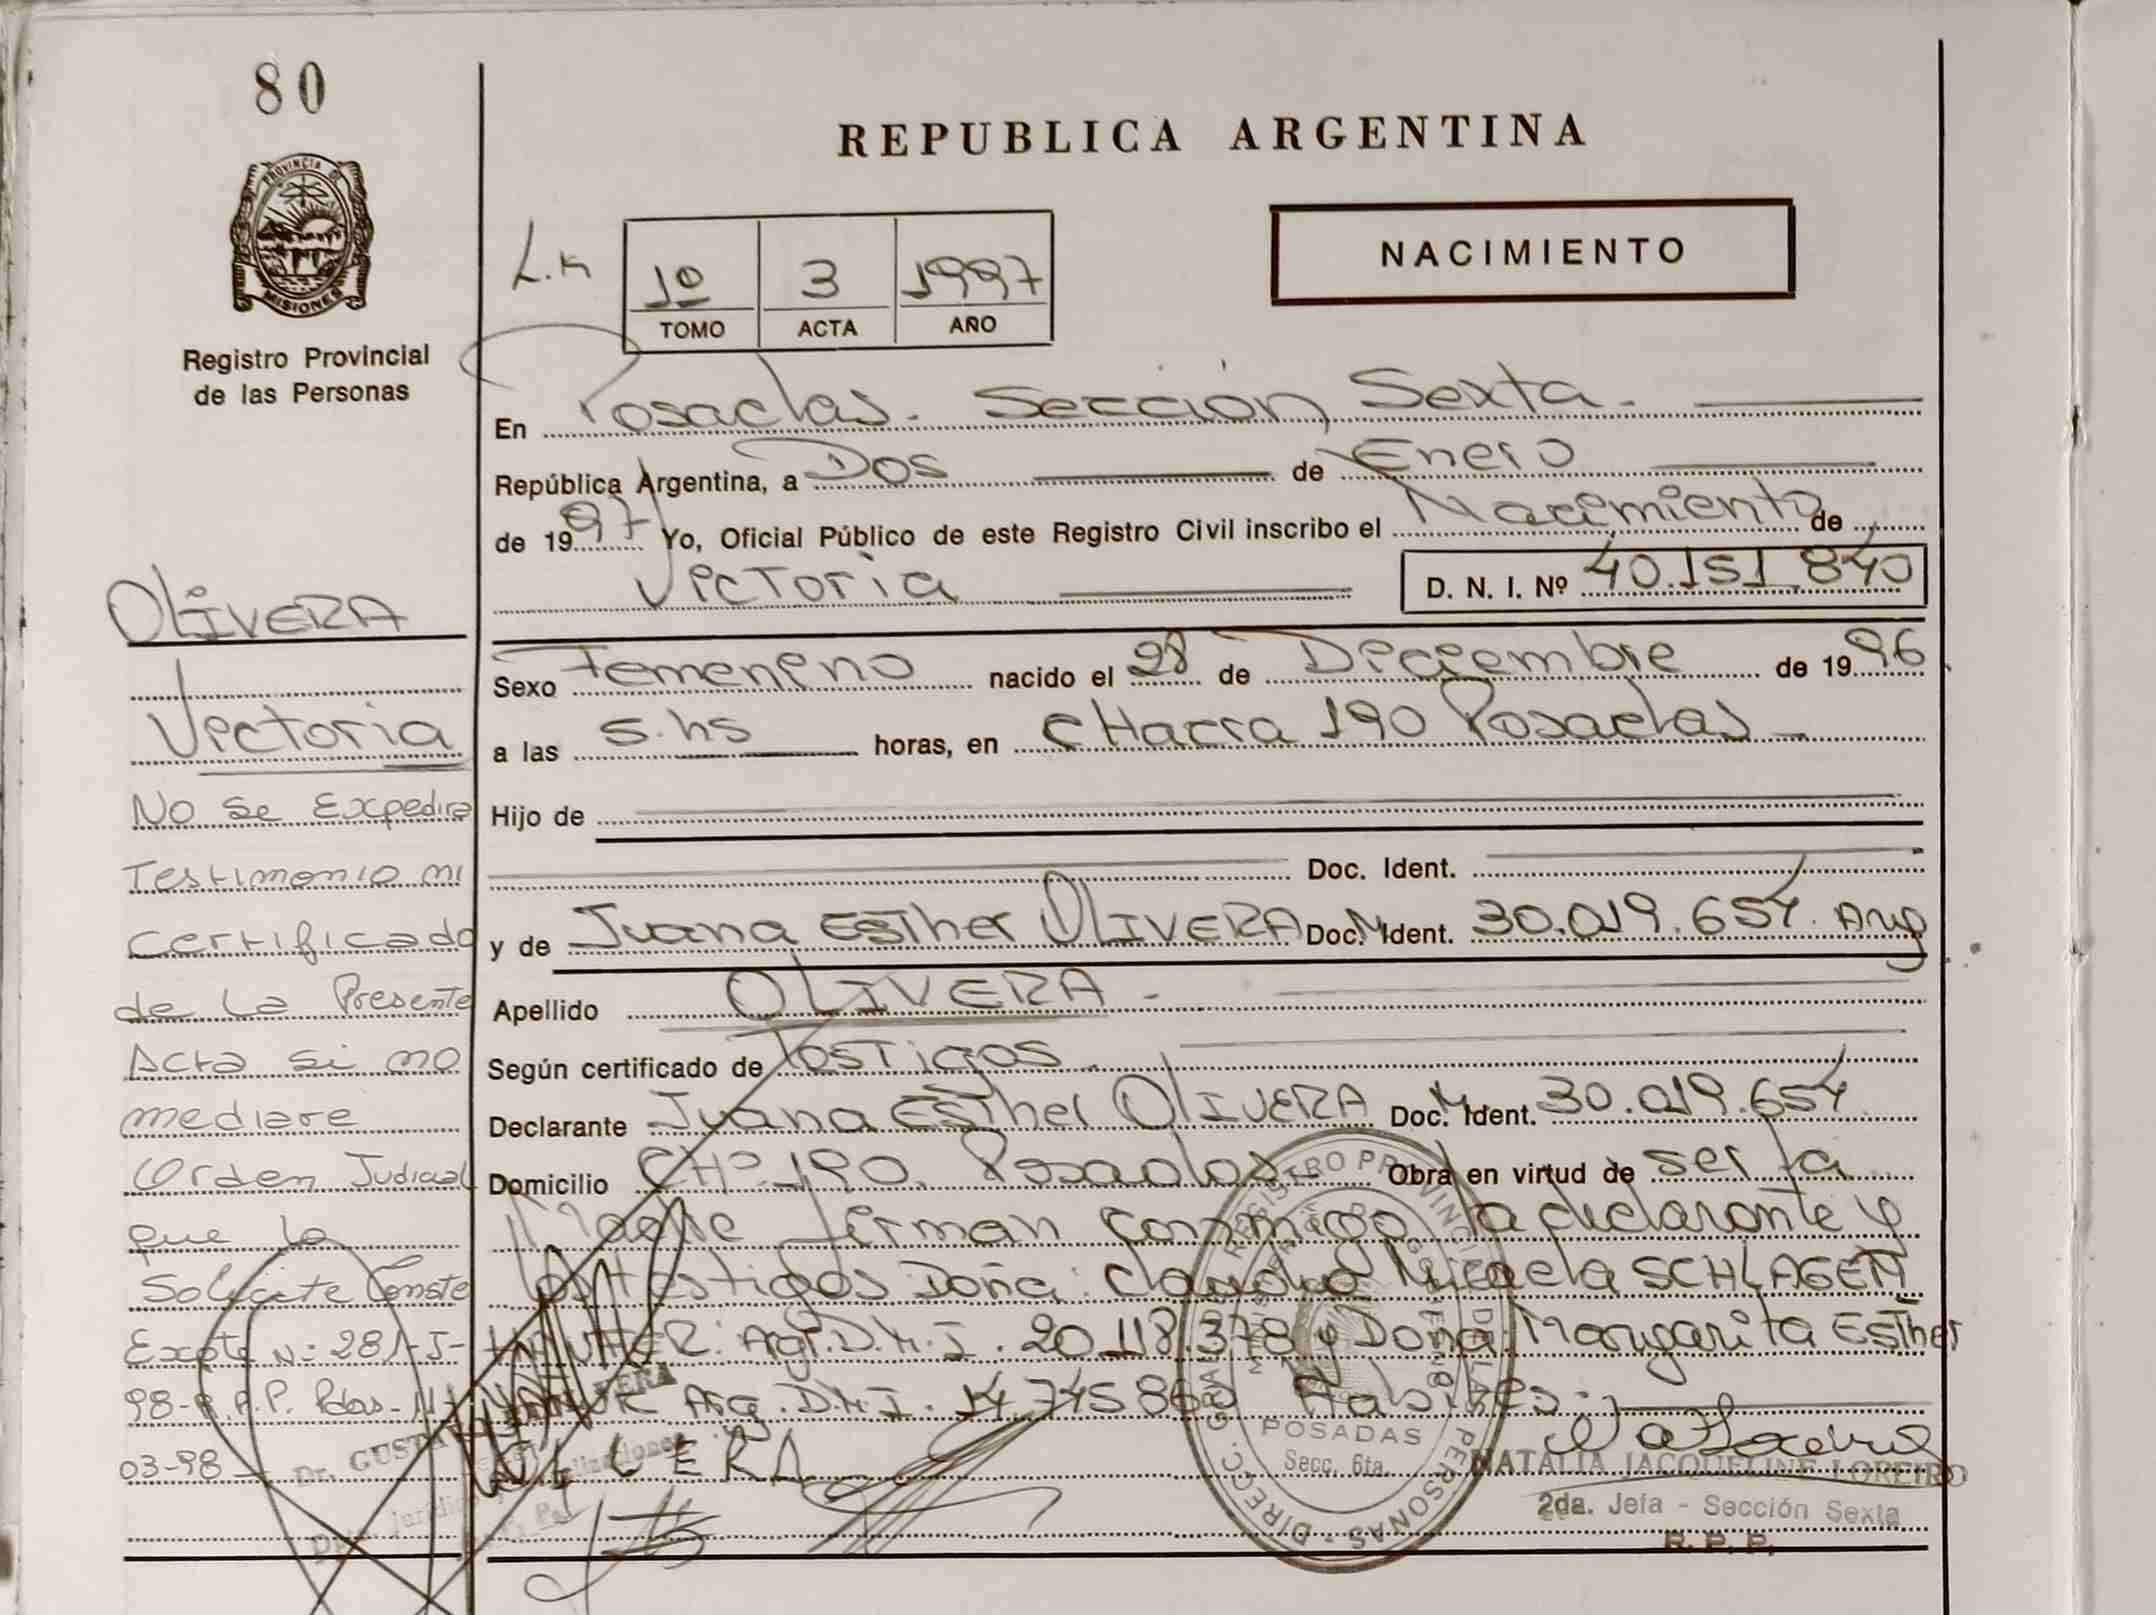 80
REPUBLICA ARGENTINA
PROVINCIA DE
MISIONES
Registro Provincial
de las Personas
1º 3 1997
TOMO ACTA AÑO
NACIMIENTO
En Posadas. Sección Sexta.
República Argentina, a Dos de Enero
de 1997 Yo, Oficial Público de este Registro Civil inscribo el Nacimiento de
Victoria D. N. I. Nº 40.151.840
Sexo Femenino nacido el 28 de Diciembre de 1996
a las 5.hs horas, en CHacra 190 Posadas
Hijo de
Doc. Ident.
y de Juana Esther OLIVERA Doc. Ident. 30.019.654. Arg
Apellido OLIVERA
Según certificado de Testigos
Declarante Juana Esther OLIVERA Doc. Ident. 30.019.654
Domicilio CHº 190. Posadas Obra en virtud de ser la
Madre firman conmigo la declarante y
los testigos Doña: Claudia Micaela
Arg. D.N.I. 20.118.378 y Doña Margarita Esther
Arg. D.N.I. 14.745.860 Habiles
OLIVERA
OLIVERA
Victoria
No Se Expedira
Testimonio ni
Certificado
de La Presente
Acta si no
mediare
Orden Judicial
que lo
Solicite Conste
Expte Nº 281-I-
98-R.P.P. Pdas-11-
03-98
POSADAS
Secc. 6ta.
NATALIA JACQUELINE LOREIRO
2da. Jefa - Sección Sexta
R. P. P.